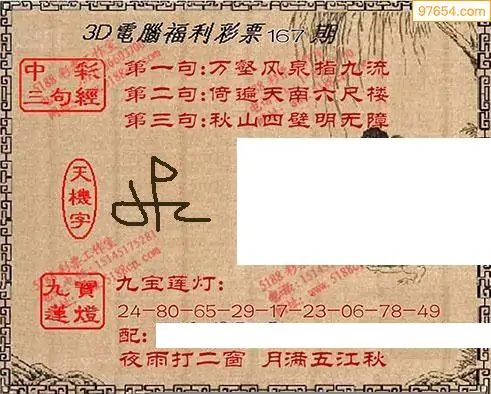 97654.com
3D電腦福利彩票167期
中彩
三句經
第一句:万壑风泉指九流
第二句:倚遍天南六尺楼
第三句:秋山四壁明无障
天機字
九寶
蓮燈
九宝莲灯:
24-80-65-29-17-23-06-78-49
配:
夜雨打二窗 月满五江秋